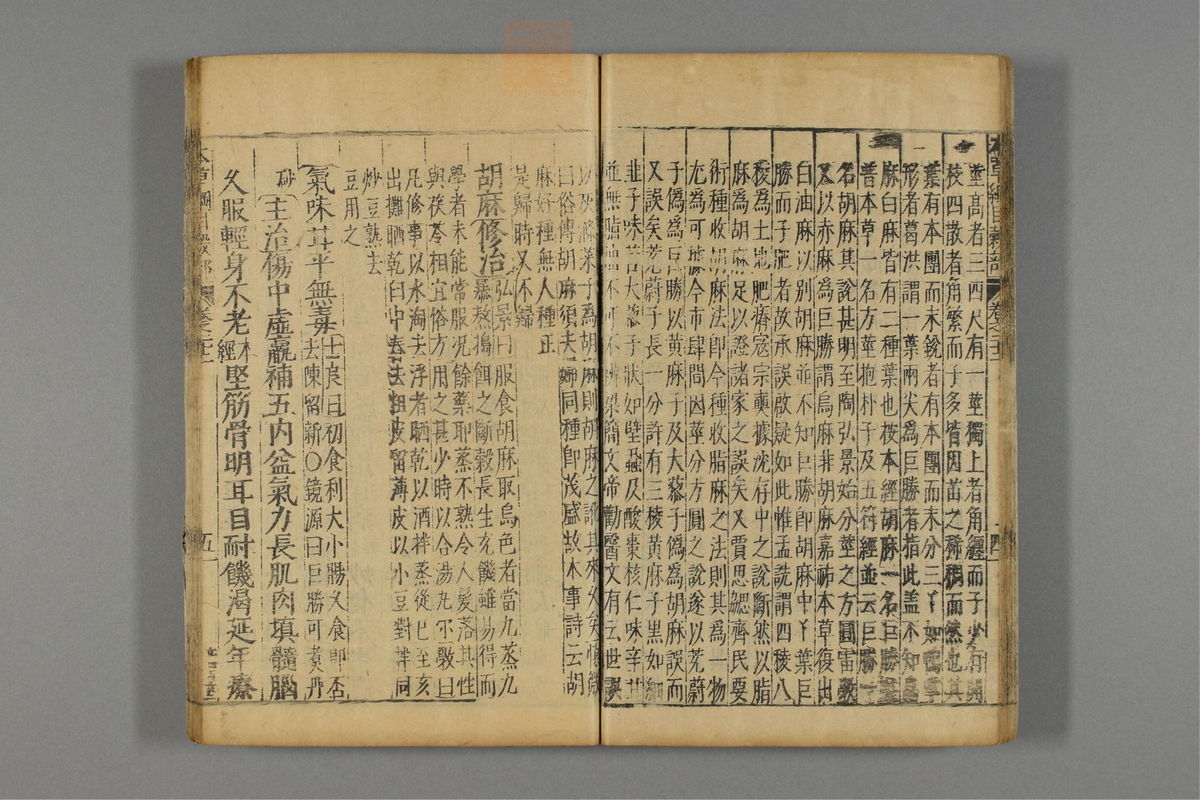 本草綱目穀部 卷之二十二 四
莖高者三四尺有一莖獨上者角纏而子少有開
枝四散者角繁而子多皆因苗之稀稠而然也其
葉有本團而末銳者有本團而末分三丫如鴨掌
形者葛洪謂一葉兩尖爲巨勝者指此盖不知烏
麻白麻皆有二種葉也按本經胡麻一名巨勝吳
普本草一名方莖抱朴子及五符經並云巨勝一
名胡麻其說甚明至陶弘景始分莖之方圓雷斅
又以赤麻爲巨勝謂烏麻非胡麻嘉祐本草復出
白油麻以别胡麻並不知巨勝卽胡麻中丫葉巨
勝而子肥者故承誤啟疑如此惟孟詵謂四稜八
稜爲土地肥瘠寇宗奭據沈存中之說斷然以脂
麻爲胡麻足以證諸家之誤矣又賈思勰齊民要
術種收胡麻法卽今種收脂麻之法則其爲一物
尤爲可據今市肆間因莖分方圓之說遂以茺蔚
子僞爲巨勝以黃麻子及大藜子僞爲胡麻誤而
又誤矣茺蔚子長一分許有三稜黃麻子黑如細
韭子味苦大藜子狀如壁蝨及酸棗核仁味辛甘
並無脂油不可不辨梁簡文帝勸醫文有云世誤
以灰滌菜子爲胡麻則胡麻之訛其來久矣愼微
曰俗傳胡麻須夫婦同種卽茂盛故本事詩云胡
麻好種無人種正
是歸時又不歸
胡麻修治弘景曰服食胡麻取烏色者當九蒸九
暴熬搗餌之斷穀長生充饑雖易得而
學者未能常服况餘藥耶蒸不熟令人髮落其性
與茯苓相宜俗方用之甚少時以合湯丸爾斅曰
凡修事以水淘去浮者晒乾以酒拌蒸從巳至亥
出攤晒乾臼中舂去粗皮留薄皮以小豆對拌同
炒豆熟去
豆用之
氣味甘平無毒士良曰初食利大小腸久食卽否
去陳留新〇鏡源曰巨勝可煮丹
砂
主治傷中虛羸補五内益氣力長肌肉塡髓腦
久服輕身不老本經堅筋骨明耳目耐饑渴延年療
本草綱目穀部 卷之二十二 五